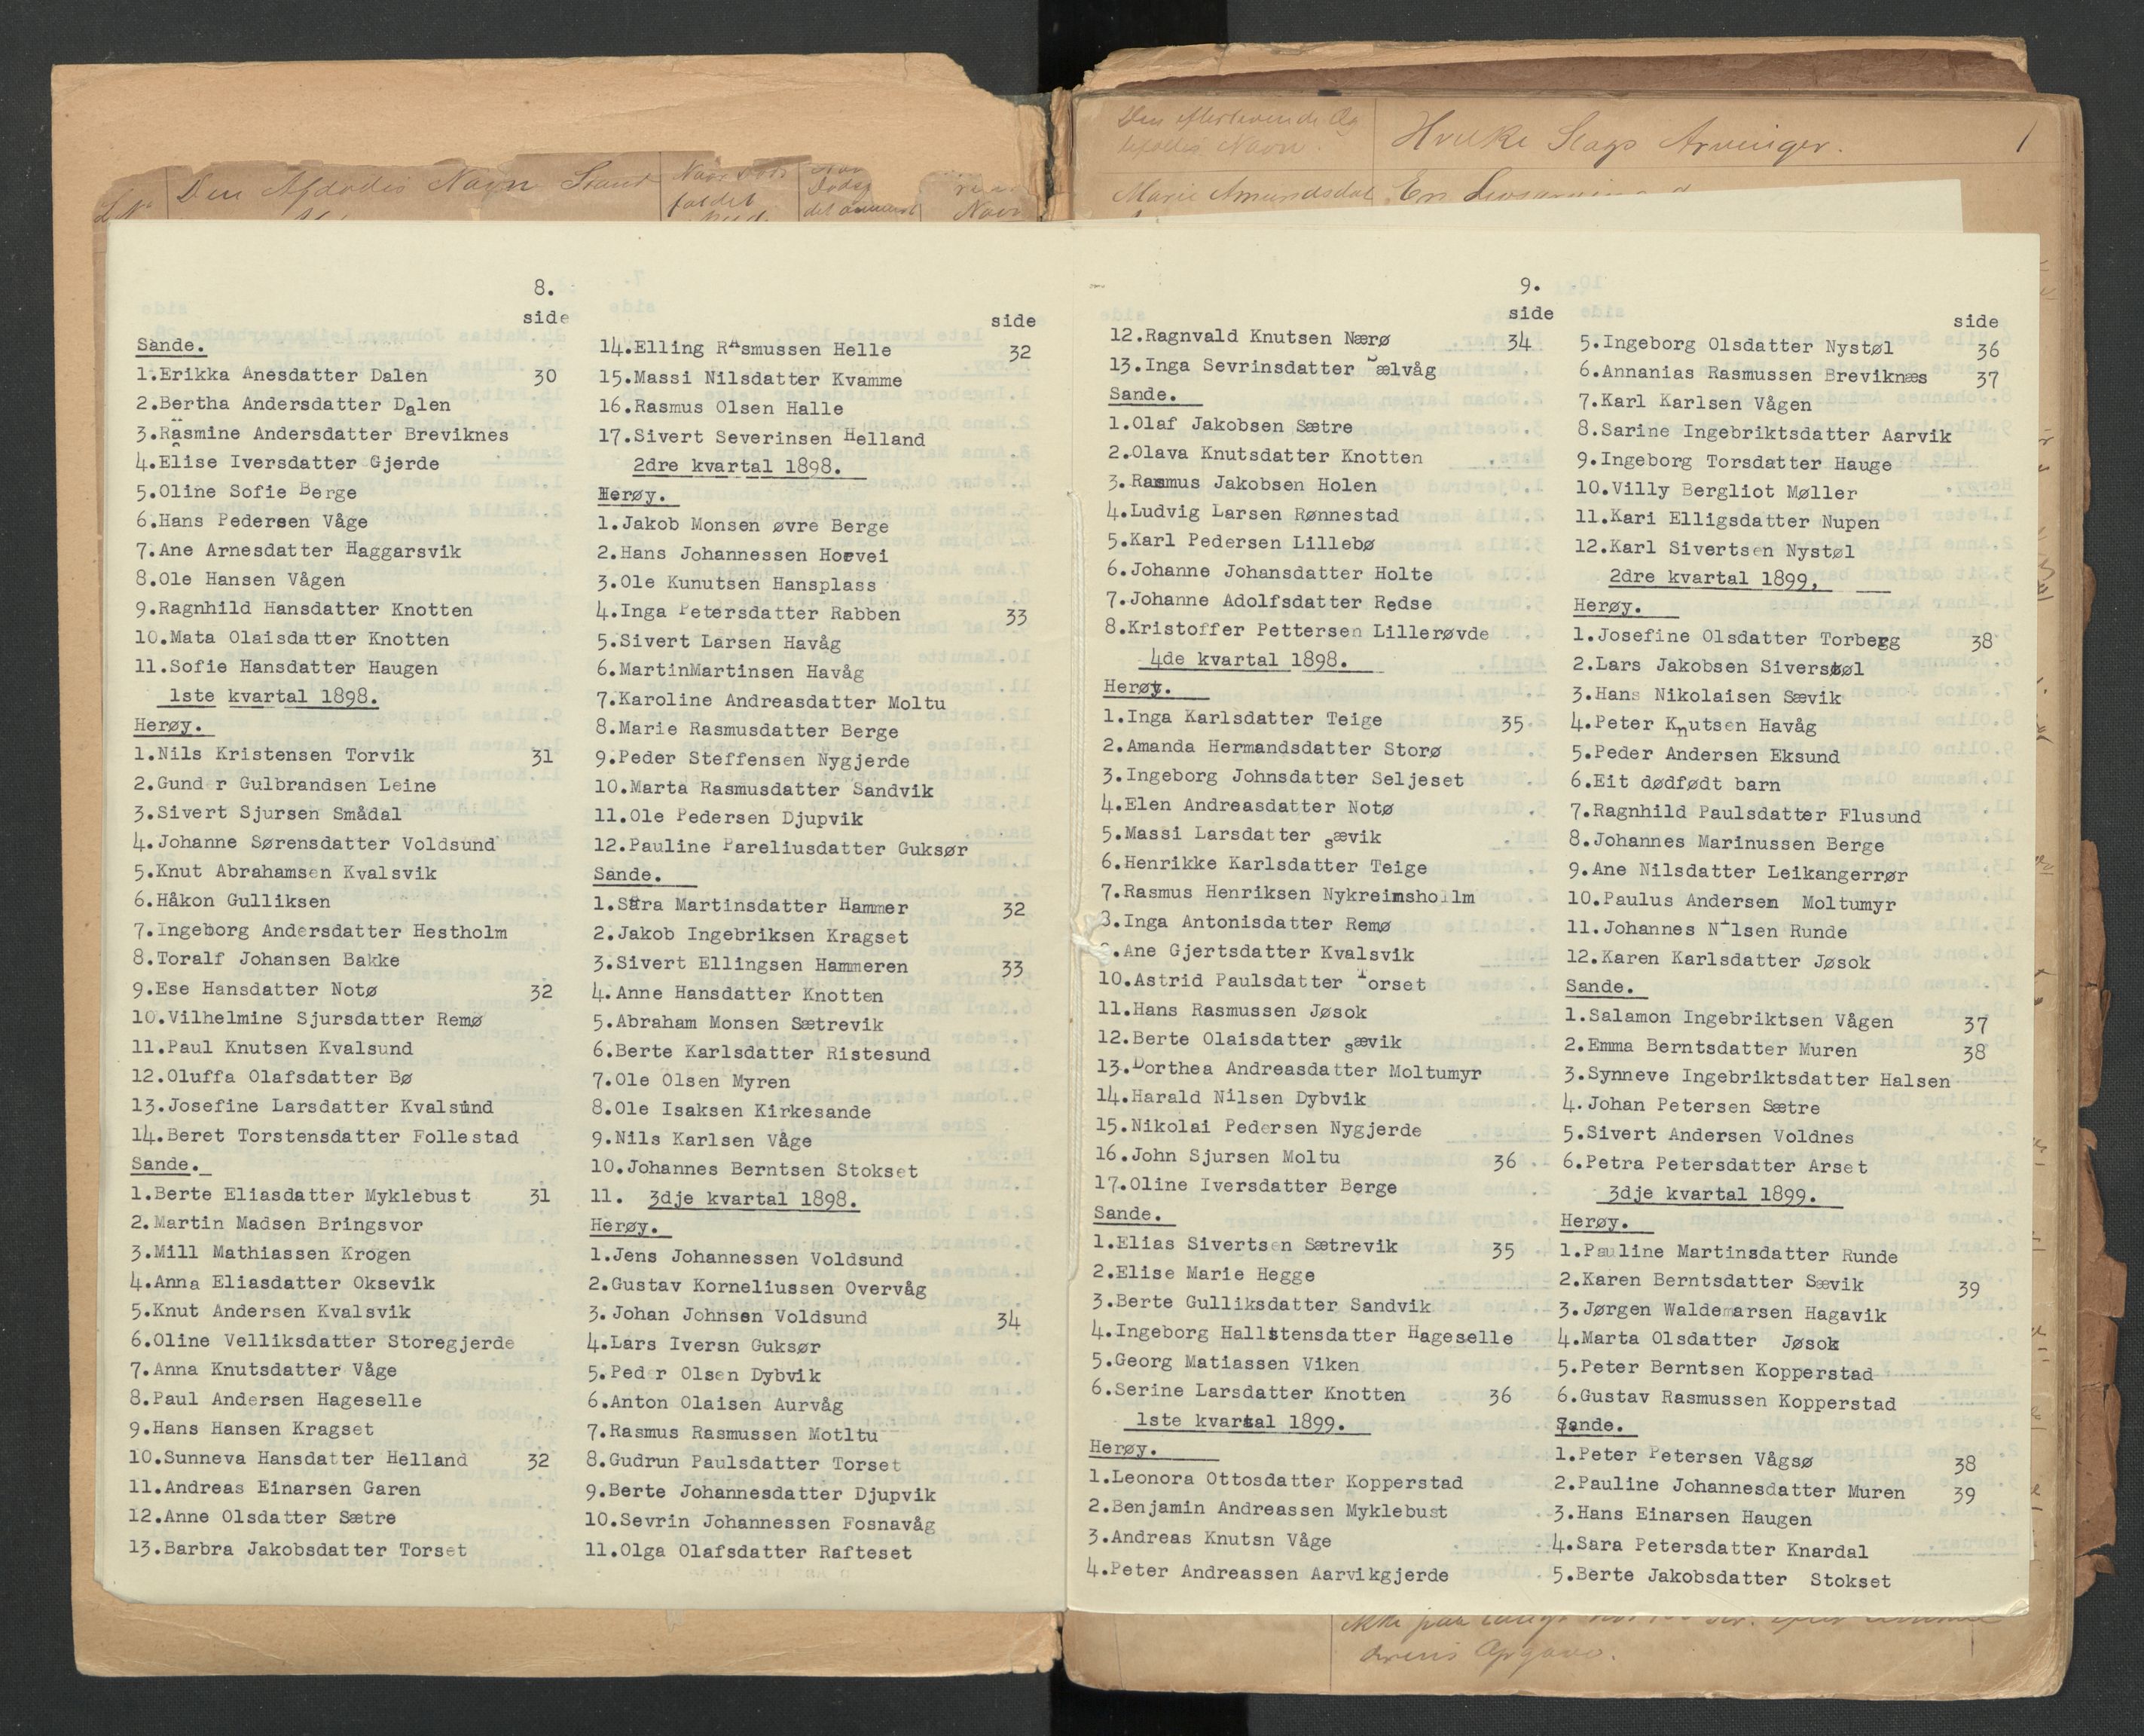 Den Afdødes Navn Stand
Den efterlevende Æg
tefædes Navn.
Hvilke Slags Arvinger.
1
Marie Amundsdat
8.
side
Sande.
1.Erikka Anesdatter Dalen 30
2.Bertha Andersdatter Dalen
3.Rasmine Andersdatter Breviknes
4.Elise Iversdatter Gjerde
5.Oline Sofie Berge
6.Hans Pedersen Våge
7.Ane Arnesdatter Haggarsvik
8.Ole Hansen Vågen
9.Ragnhild Hansdatter Knotten
10.Mata Olaisdatter Knotten
11.Sofie Hansdatter Haugen
1ste kvartal 1898.
Herøy.
1.Nils Kristensen Torvik 31
2.Gund r Gulbrandsen Leine
3.Sivert Sjursen Smådal
4.Johanne Sørensdatter Voldsund
5.Knut Abrahamsen Kvalsvik
6.Håkon Gulliksen
7.Ingeborg Andersdatter Hestholm
8.Toralf Johansen Bakke
9.Ese Hansdatter Notø 32
10.Vilhelmine Sjursdatter Remø
11.Paul Knutsen Kvalsund
12.Oluffa Olafsdatter Bø
13.Josefine Larsdatter Kvalsund
14.Beret Torstensdatter Follestad
Sande.
1.Berte Eliasdatter Myklebust 31
2.Martin Madsen Bringsvor
3.Mill Mathiassen Krogen
4.Anna Eliasdatter Oksevik
5.Knut Andersen Kvalsvik
6.Oline Velliksdatter Storegjerde
7.Anna Knutsdatter Våge
8.Paul Andersen Hageselle
9.Hans Hansen Kragset
10.Sunneva Hansdatter Helland 32
11.Andreas Einarsen Garen
12.Anne Olsdatter Sætre
13.Barbra Jakobsdatter Torset
side
14.Elling Rasmussen Helle 32
15.Massi Nilsdatter Kvamme
16.Rasmus Olsen Halle
17.Sivert Severinsen Helland
2dre kvartal 1898.
Herøy.
1.Jakob Monsen øvre Berge
2.Hans Johannessen Horvei
3.Ole Kunutsen Hansplass
4.Inga Petersdatter Rabben 33
5.Sivert Larsen Havåg
6.MartinMartinsen Havåg
7.Karoline Andreasdatter Moltu
8.Marie Rasmusdatter Berge
9.Peder Steffensen Nygjerde
10.Marta Rasmusdatter Sandvik
11.Ole Pedersen Djupvik
12.Pauline Pareliusdatter Guksør
Sande.
1.Sara Martinsdatter Hammer 32
2.Jakob Ingebriksen Kragset
3.Sivert Ellingsen Hammeren 33
4.Anne Hansdatter Knotten
5.Abraham Monsen Sætrevik
6.Berte Karlsdatter Ristesund
7.Ole Olsen Myren
8.Ole Isaksen Kirkesande
9.Nils Karlsen Våge
10.Johannes Berntsen Stokset
11. 3dje kvartal 1898.
Herøy.
1.Jens Johannessen Voldsund
2.Gustav Korneliussen Overvåg
3.Johan Johnsen Voldsund 34
4.Lars Iversn Guksør
5.Peder Olsen Dybvik
6.Anton Olaisen Aurvåg
7.Rasmus Rasmussen Motltu
8.Gudrun Paulsdatter Torset
9.Berte Johannesdatter Djupvik
10.Sevrin Johannessen Fosnavåg
11.Olga Olafsdatter Rafteset
9.
side
12.Ragnvald Knutsen Nærø 34
13.Inga Sevrinsdatter Sælvåg
Sande.
1.Olaf Jakobsen Sætre
2.Olava Knutsdatter Knotten
3.Rasmus Jakobsen Holen
4.Ludvig Larsen Rønnestad
5.Karl Pedersen Lillebø
6.Johanne Johansdatter Holte
7.Johanne Adolfsdatter Redse
8.Kristoffer Pettersen Lillerøvde
4de kvartal 1898.
Herøy.
1.Inga Karlsdatter Teige 35
2.Amanda Hermandsdatter Storø
3.Ingeborg Johnsdatter Seljeset
4.Elen Andreasdatter Notø
5.Massi Larsdatter sævik
6.Henrikke Karlsdatter Teige
7.Rasmus Henriksen Nykreimsholm
8.Inga Antonisdatter Remø
.Ane Gjertsdatter Kvalsvik
10.Astrid Paulsdatter Torset
11.Hans Rasmussen Jøsok
12.Berte Olaisdatter sævik
13.Dorthea Andreasdatter Moltumyr
14.Harald Nilsen Dybvik
15.Nikolai Pedersen Nygjerde
16.John Sjursen Moltu 36
17.Oline Iversdatter Berge
Sande.
1.Elias Sivertsen Sætrevik 35
2.Elise Marie Hegge
3.Berte Gulliksdatter Sandvik
4.Ingeborg Hallstensdatter Hageselle
5.Georg Matiassen Viken
6.Serine Larsdatter Knotten 36
1ste kvartal 1899.
Herøy.
1.Leonora Ottosdatter Kopperstad
2.Benjamin Andreassen Myklebust
3.Andreas Knutsn Våge
4.Peter Andreassen Aarvikgjerde
side
5.Ingeborg Olsdatter Nystøl 36
6.Annanias Rasmussen Breviknæs 37
7.Karl Karlsen Vågen
8.Sarine Ingebriktsdatter Aarvik
9.Ingeborg Torsdatter Hauge
10.Villy Bergliot Møller
11.Kari Elligsdatter Nupen
12.Karl Sivertsen Nystøl
2dre kvartal 1899.
Herøy.
1.Josefine Olsdatter Torbergg 38
2.Lars Jakobsen Siverstøl
3.Hans Nikolaisen Sævik
4.Peter Knutsen Havåg
5.Peder Andersen Eksund
6.Eit dødfødt barn
7.Ragnhild Paulsdatter Flusund
8.Johannes Marinussen Berge
9.Ane Nilsdatter Leikangerrør
10.Paulus Andersen Moltumyr
11.Johannes Nilsen Runde
12.Karen Karlsdatter Jøsok
Sande.
1.Salamon Ingebriktsen Vågen 37
2.Emma Berntsdatter Muren 38
3.Synneve Ingebriktsdatter Halsen
4.Johan Petersen Sætre
5.Sivert Andersen Voldnes
6.Petra Petersdatter Arset
3dje kvartal 1899.
Herøy.
1.Pauline Martinsdatter Runde
2.Karen Berntsdatter Sævik 39
3.Jørgen Waldemarsen Hagavik
4.Marta Olsdatter Jøsok
5.Peter Berntsen Kopperstad
6.Gustav Rasmussen Kopperstad
Sande.
1.Peter Petersen Vågsø 38
2.Pauline Johannesdatter Muren 39
3.Hans Einarsen Haugen
4.Sara Petersdatter Knardal
5.Berte Jakobsdatter Stokset